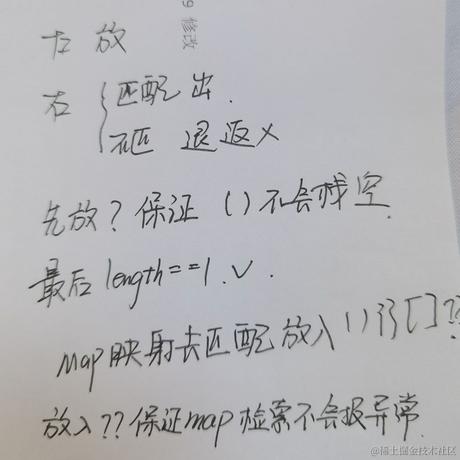 9 修改
左 放
右 { 匹配 出.
不匹 退返×
先放? 保证 () 不会栈空.
最后 length==1.√.
map映射去匹配放入(){}[]??
放入??保证map 检索不会报异常.
@稀土掘金技术社区